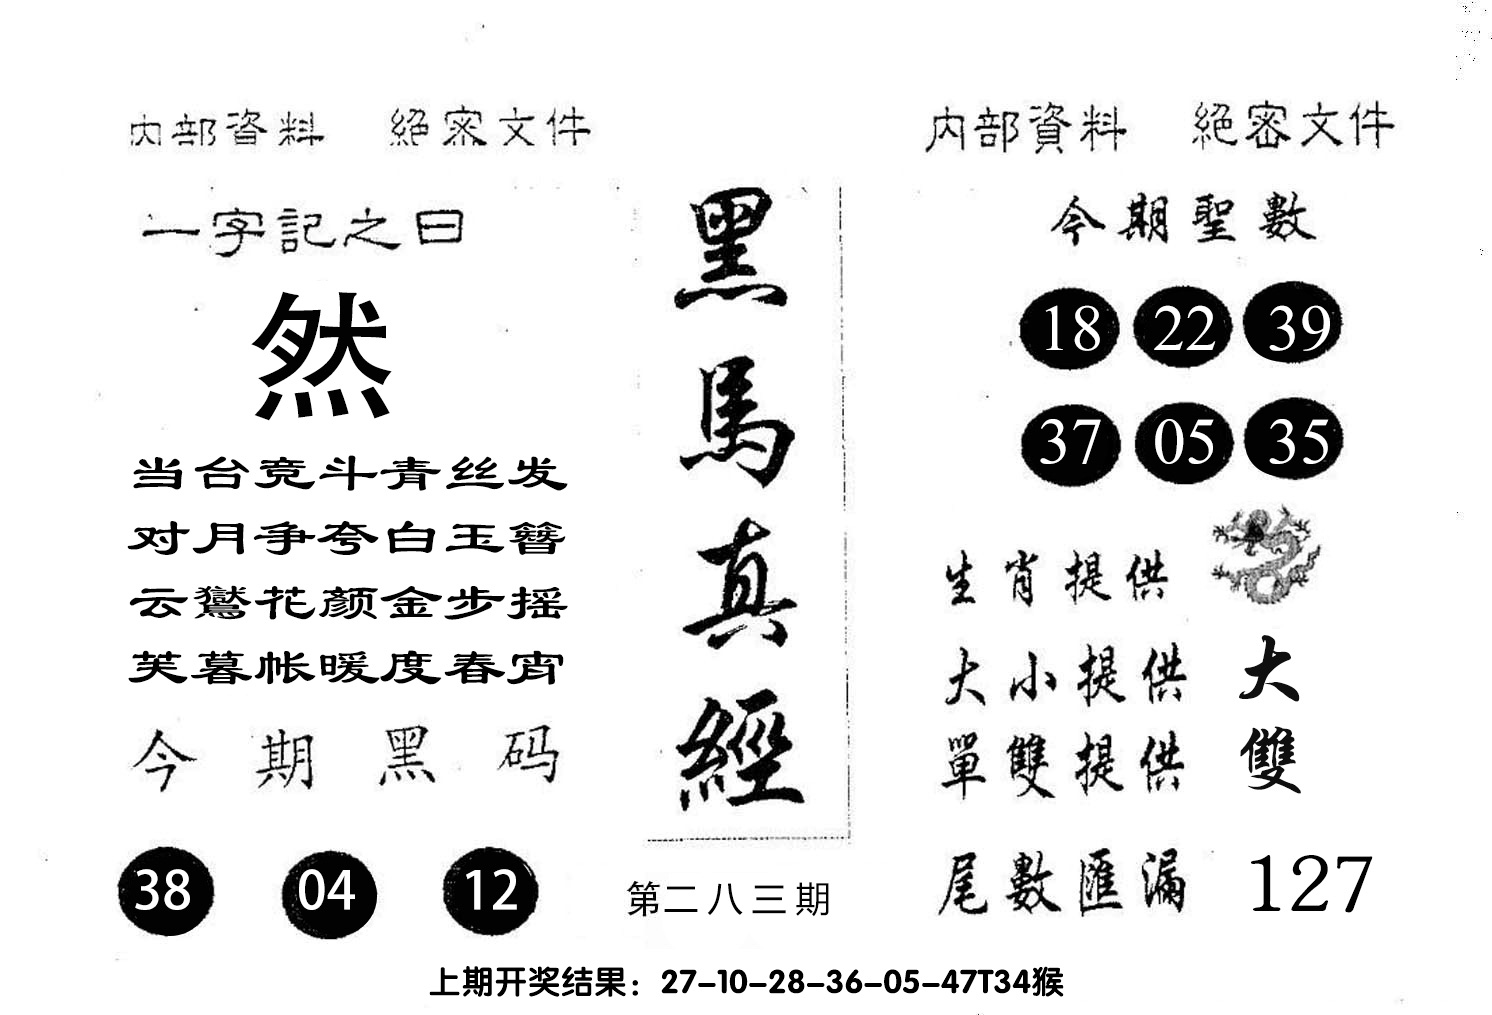 内部資料 絕密文件
一字記之曰
然
当台竞斗青丝发
对月争夸白玉簪
云鬟花颜金步摇
芙暮帐暖度春宵
今期黑码
38 04 12
黑馬真經
第二八三期
内部資料 絕密文件
今期聖數
18 22 39
37 05 35
生肖提供
大小提供 大
單雙提供 雙
尾數匯漏 127
上期开奖结果：27-10-28-36-05-47T34猴